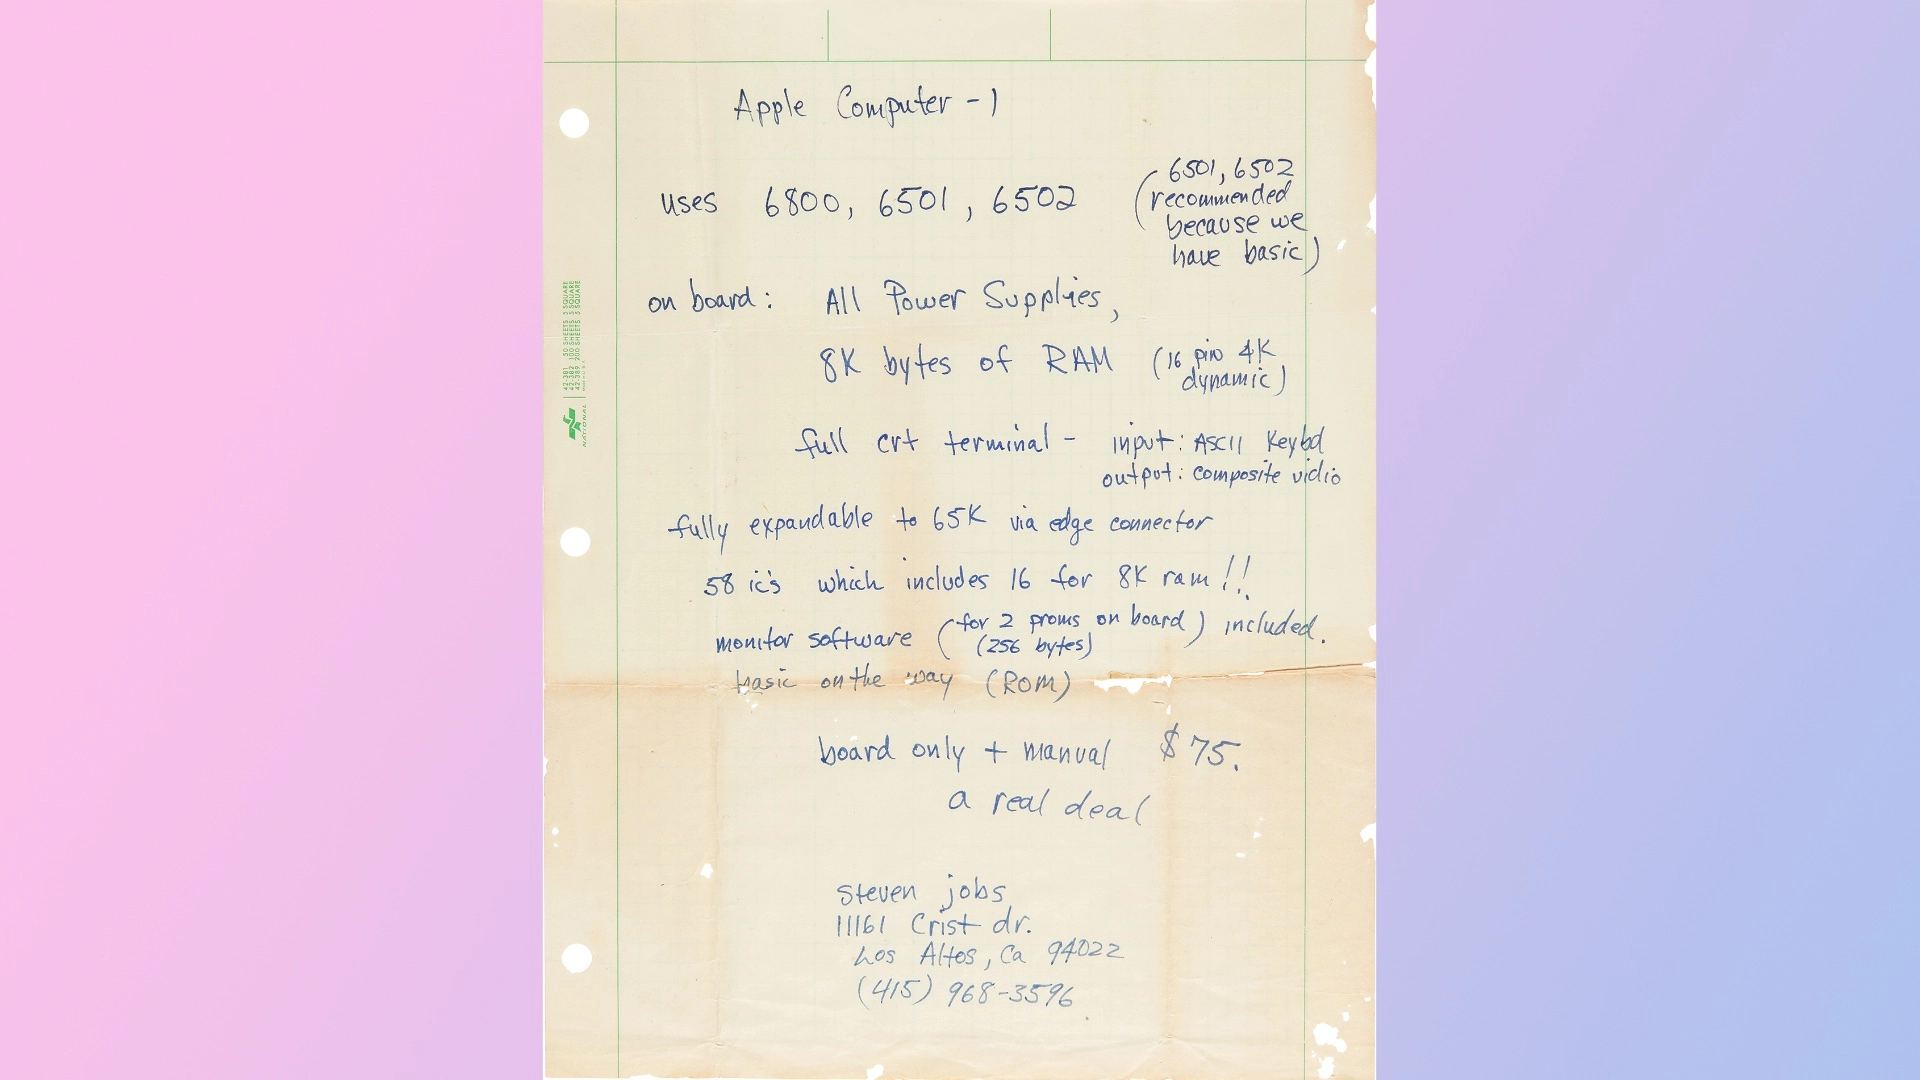 Apple Computer - 1
uses 6800, 6501, 6502
(6501, 6502
recommended
because we
have basic)
on board: All Power Supplies,
8K bytes of RAM (16 pin 4K
dynamic)
full crt terminal - input: ASCII Keybd
output: composite vidio
fully expandable to 65K via edge connector
58 ic's which includes 16 for 8K ram!!
monitor software (for 2 proms on board) included.
(256 bytes)
basic on the way (ROM)
board only + manual $75.
a real deal
steven jobs
11161 Crist dr.
Los Altos, Ca 94022
(415) 968-3596
42-381 50 SHEETS 5 SQUARE
42-382 100 SHEETS 5 SQUARE
42-389 200 SHEETS 5 SQUARE
NATIONAL